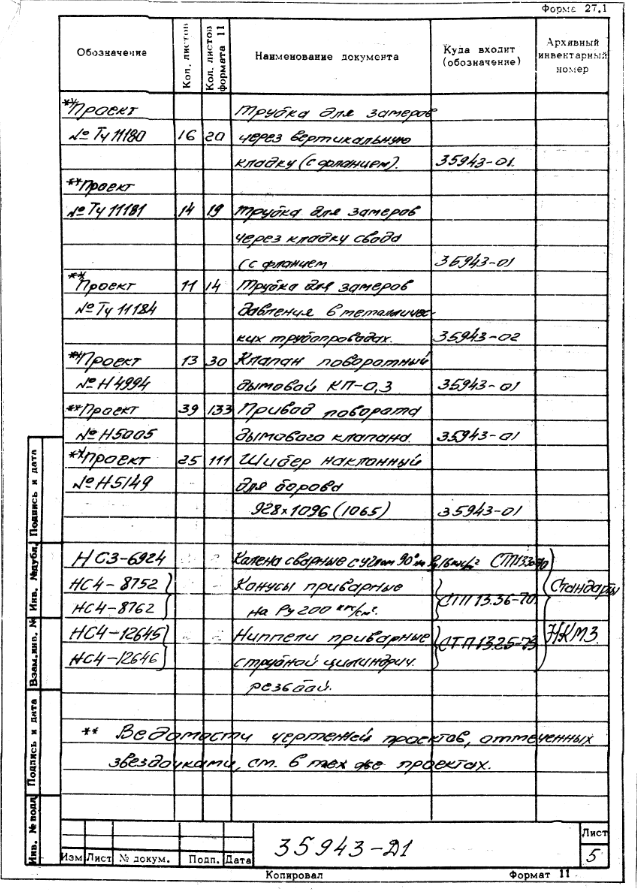 Форма 27.1
Обозначение Кол. листов Кол. листов формата 11 Наименование документа Куда входит (обозначение) Архивный инвентарный номер
**Проект Трубка для замеров
№ Ту 11180 16 20 через вертикальную
кладку (с фланцем). 35943-01
**Проект
№ Ту 11181 14 19 Трубка для замеров
через кладку свода
(с фланцем 35943-01
**Проект 11 14 Трубка для замеров
№ Ту 11184 давления в металличес-
ких трубопроводах. 35943-02
**Проект 13 30 Клапан поворотный
№ Н4994 дымовой КП-0,3 35943-01
**Проект 39 133 Привод поворота
№ Н5005 дымового клапана 35943-01
**Проект 25 111 Шибер наклонный
№ Н5149 для борова
928×1096 (1065) 35943-01
НС3-6924 Колена сварные с углом 90°
НС4-8752 Конусы приварные Стандарты
НС4-8762 на Ру200 кг/см². СТП 13.36-70
НС4-12645 Ниппели приварные СТП 13.25-73 НКМЗ
НС4-12646 с трубной цилиндрич.
резьбой.
** Ведомости чертежей проектов, отмеченных
звездочками, см. в тех же проектах.
Инв. № подл. Подпись и дата Взам. инв. № Инв. № дубл. Подпись и дата
35943-Д1
Лист
5
Изм Лист № докум. Подп. Дата
Копировал Формат 11